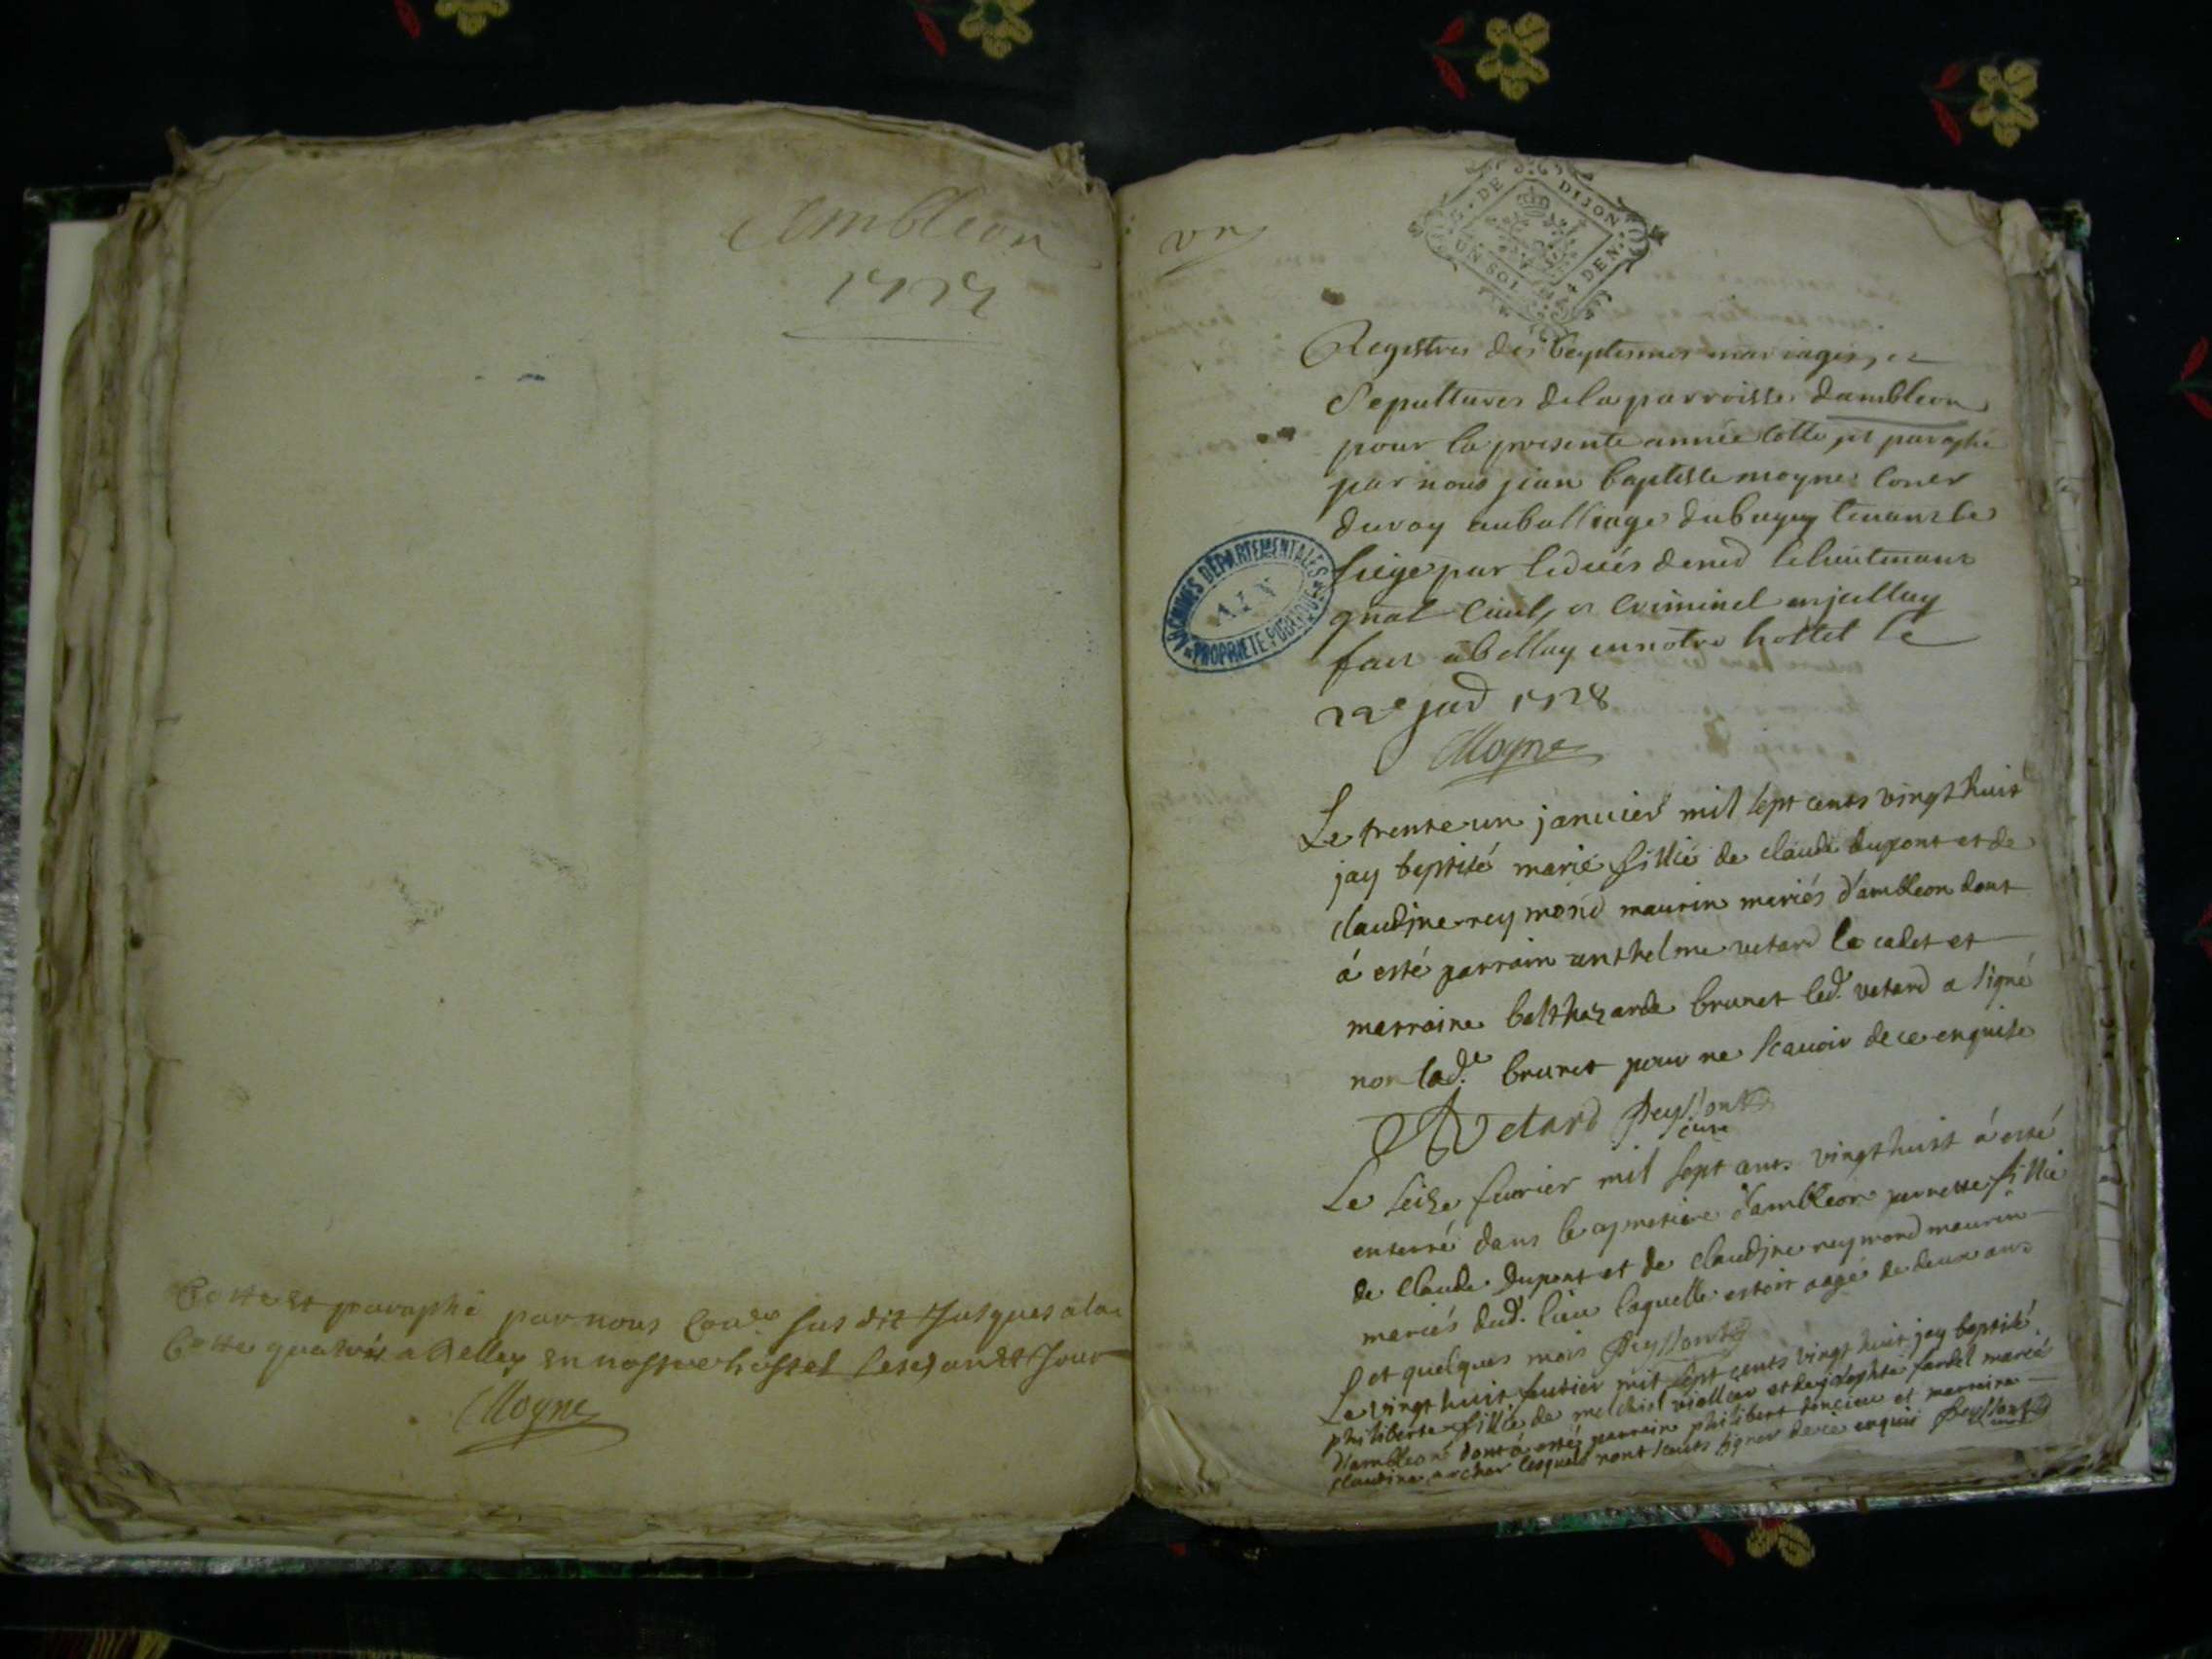 Ambleon
1727
Cotte et paraphé par nous Coner sus dit Jusques a la
Cotte quatre a Belley en nostre hostel les an et Jour
Moyne
un
G. DE DIJON
UN SOL 4 DEN.
Registres des beptesmes mariages, et
Sepultures dela parroisse dambleon
pour la presente année cotté, et paraphé
par nous jean baptiste moyne coner
du roy au balliage du bugey tenant le
siege par le decés de mr le lieutenant
gnal Civil, et Criminel en jcelluy
fait a belley en notre hostel le
22e janv 1728
Moyne
ARCHIVES DÉPARTEMENTALES
AIN
PROPRIÉTÉ PUBLIQUE
Le trente un januier mil sept cents vingt huit
jay beptisé marie fillie de claude dupont et de
claudjne reymond maurin mariés d'ambleon dont
á esté parrain anthelme vetard le cadet et
marraine balthazarde brunet led. vetard a signé
non lad.e brunet pour ne scauoir de ce enquise
A Vetard Peyssont
cure
Le seize feurier mil sept cents vingt huit á esté
enterré dans le cymetiere d'ambleon pernette fillie
de claude dupont et de claudjne reymond maurin
mariés dud. lieu laquelle estoit aagé de deux ans
et quelques mois Peyssont
Le vingt huit feurier mil sept cents vingt huit jay beptisé
philiberte fillie de melchiol viollier et de josephte fardel mariés
d'ambleon dont á esté parrain philibert poncieu et marraine
claudine archer lesquels n'ont sceuts signer de ce enquis Peyssont
cure